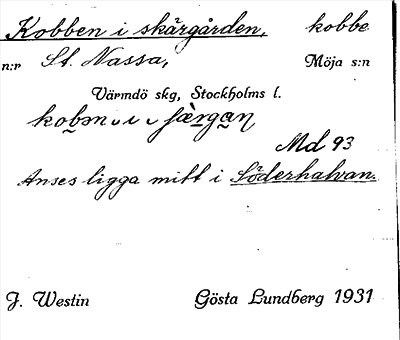 Kobben i skärgården, kobbe
n:r St. Nassa, Möja s:n
Värmdö skg, Stockholms l.
Md 93
Anses ligga mitt i Söderhalvan.
J. Westin Gösta Lundberg 1931